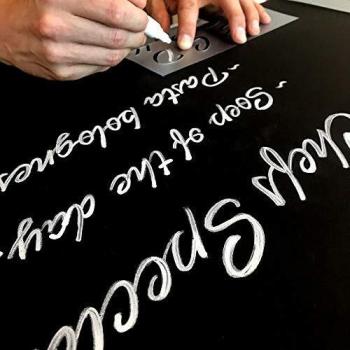 Chef's Special
~ Soep of the day
~ Pasta bolognes